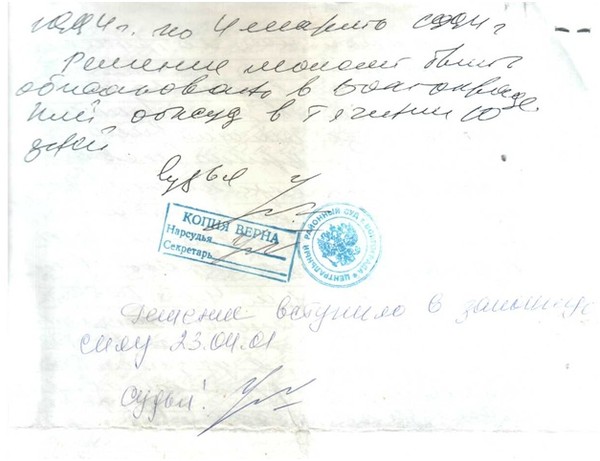 г. по 4 марта г
Решение может быть
обжаловано в Волгоградс
кий облсуд в течении 10
дней
Судья
КОПИЯ ВЕРНА
Нарсудья
Секретарь
ЦЕНТРАЛЬНЫЙ РАЙОННЫЙ СУД Г. ВОЛГОГРАДА
Решение вступило в законную
силу 23.04.01
Судья: